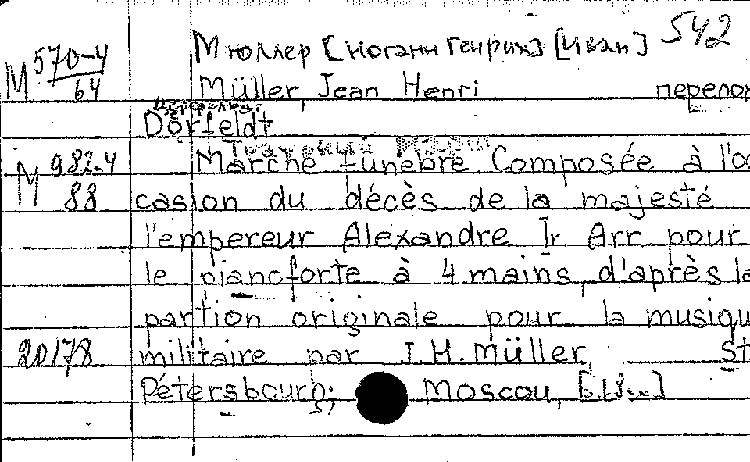 М 570-4/64 Мюллер [Иоганн Генрих] [Иван] 542
Müller, Jean Henri перелож
Dörfeldt
М 982-4/88 Marche funèbre Composée à l'oc
casion du décès de la majesté
l'empereur Alexandre Ir Arr pour
le pianoforte à 4 mains, d'après la
partion originale pour la musiqu
20178 militaire par J. H. Müller, St
Pétersbourg; Moscou,